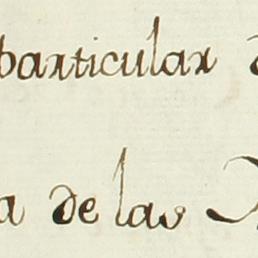 particular
de las